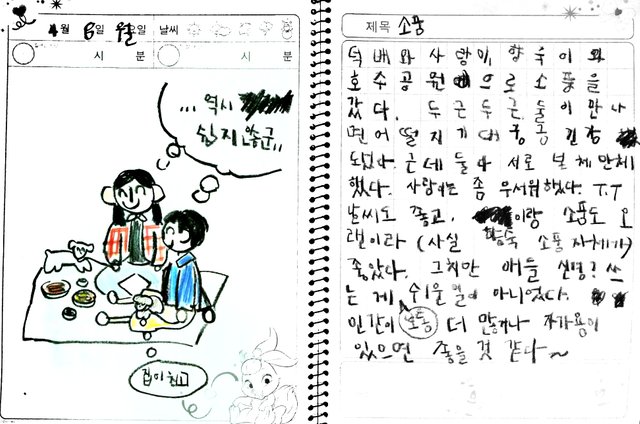 4월 6일 월요일 날씨
시 분 시 분
... 역시
쉽지 않군..
집이 최고
제목 소풍
덕배와 사랑이, 향숙이와
호수공원으로 소풍을
갔다. 두근두근 둘이 만나
면 어떨지 기대 궁금 긴장
되었다. 근데 둘 다 서로 본체만체
했다. 사랑이는 좀 무서워했다. T.T
날씨도 좋고, 이랑 소풍도 오
랜이라 (사실 소풍 자체가)
좋았다. 그치만 애들 신경? 쓰
는 게 쉬운 일이 아니었다.
인간이 보통 더 많거나 자가용이
있으면 좋을 것 같다~